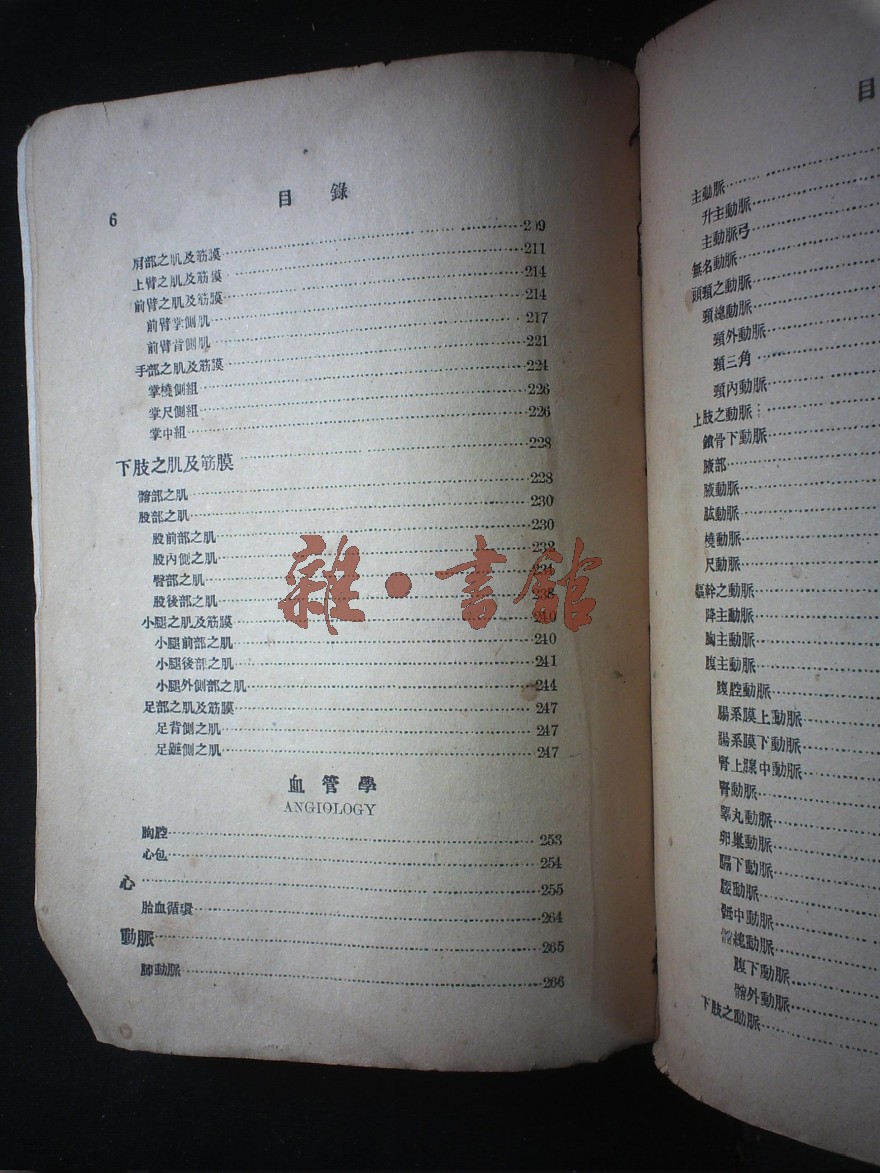 目 錄
6
肩部之肌及筋膜 209
上臂之肌及筋膜 211
前臂之肌及筋膜 214
前臂掌側肌 214
前臂背側肌 217
手部之肌及筋膜 221
掌橈側組 224
掌尺側組 226
掌中組 226
下肢之肌及筋膜 228
髂部之肌 228
股部之肌 230
股前部之肌 230
股內側之肌 232
臀部之肌 234
股後部之肌 238
小腿之肌及筋膜 240
小腿前部之肌 240
小腿後部之肌 241
小腿外側部之肌 244
足部之肌及筋膜 247
足背側之肌 247
足蹠側之肌 247
血管學
ANGIOLOGY
胸腔 253
心包 254
心 255
胎血循環 264
動脈 265
肺動脈 266
雜·書館
目
主動脈
升主動脈
主動脈弓
無名動脈
頭頸之動脈
頸總動脈
頸外動脈
頸三角
頸內動脈
上肢之動脈
鎖骨下動脈
腋部
腋動脈
肱動脈
橈動脈
尺動脈
軀幹之動脈
降主動脈
胸主動脈
腹主動脈
腹腔動脈
腸系膜上動脈
腸系膜下動脈
腎上腺中動脈
腎動脈
睾丸動脈
卵巢動脈
膈下動脈
腰動脈
骶中動脈
髂總動脈
腹下動脈
髂外動脈
下肢之動脈